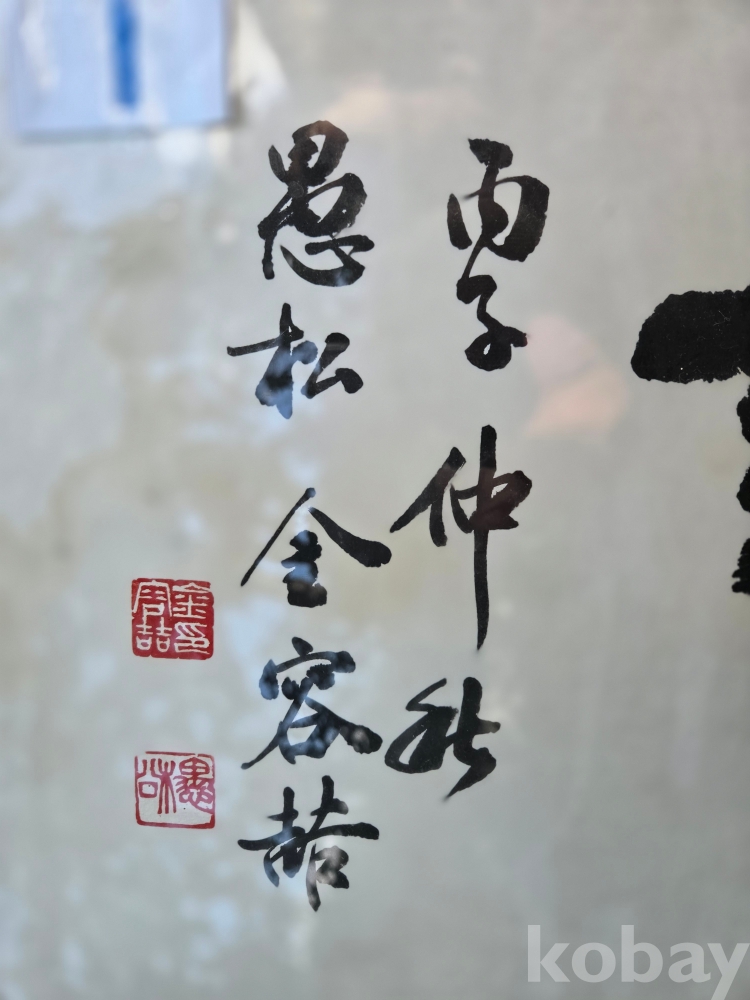 丙子 仲秋
愚松 金容喆
金容喆印
愚松
kobay